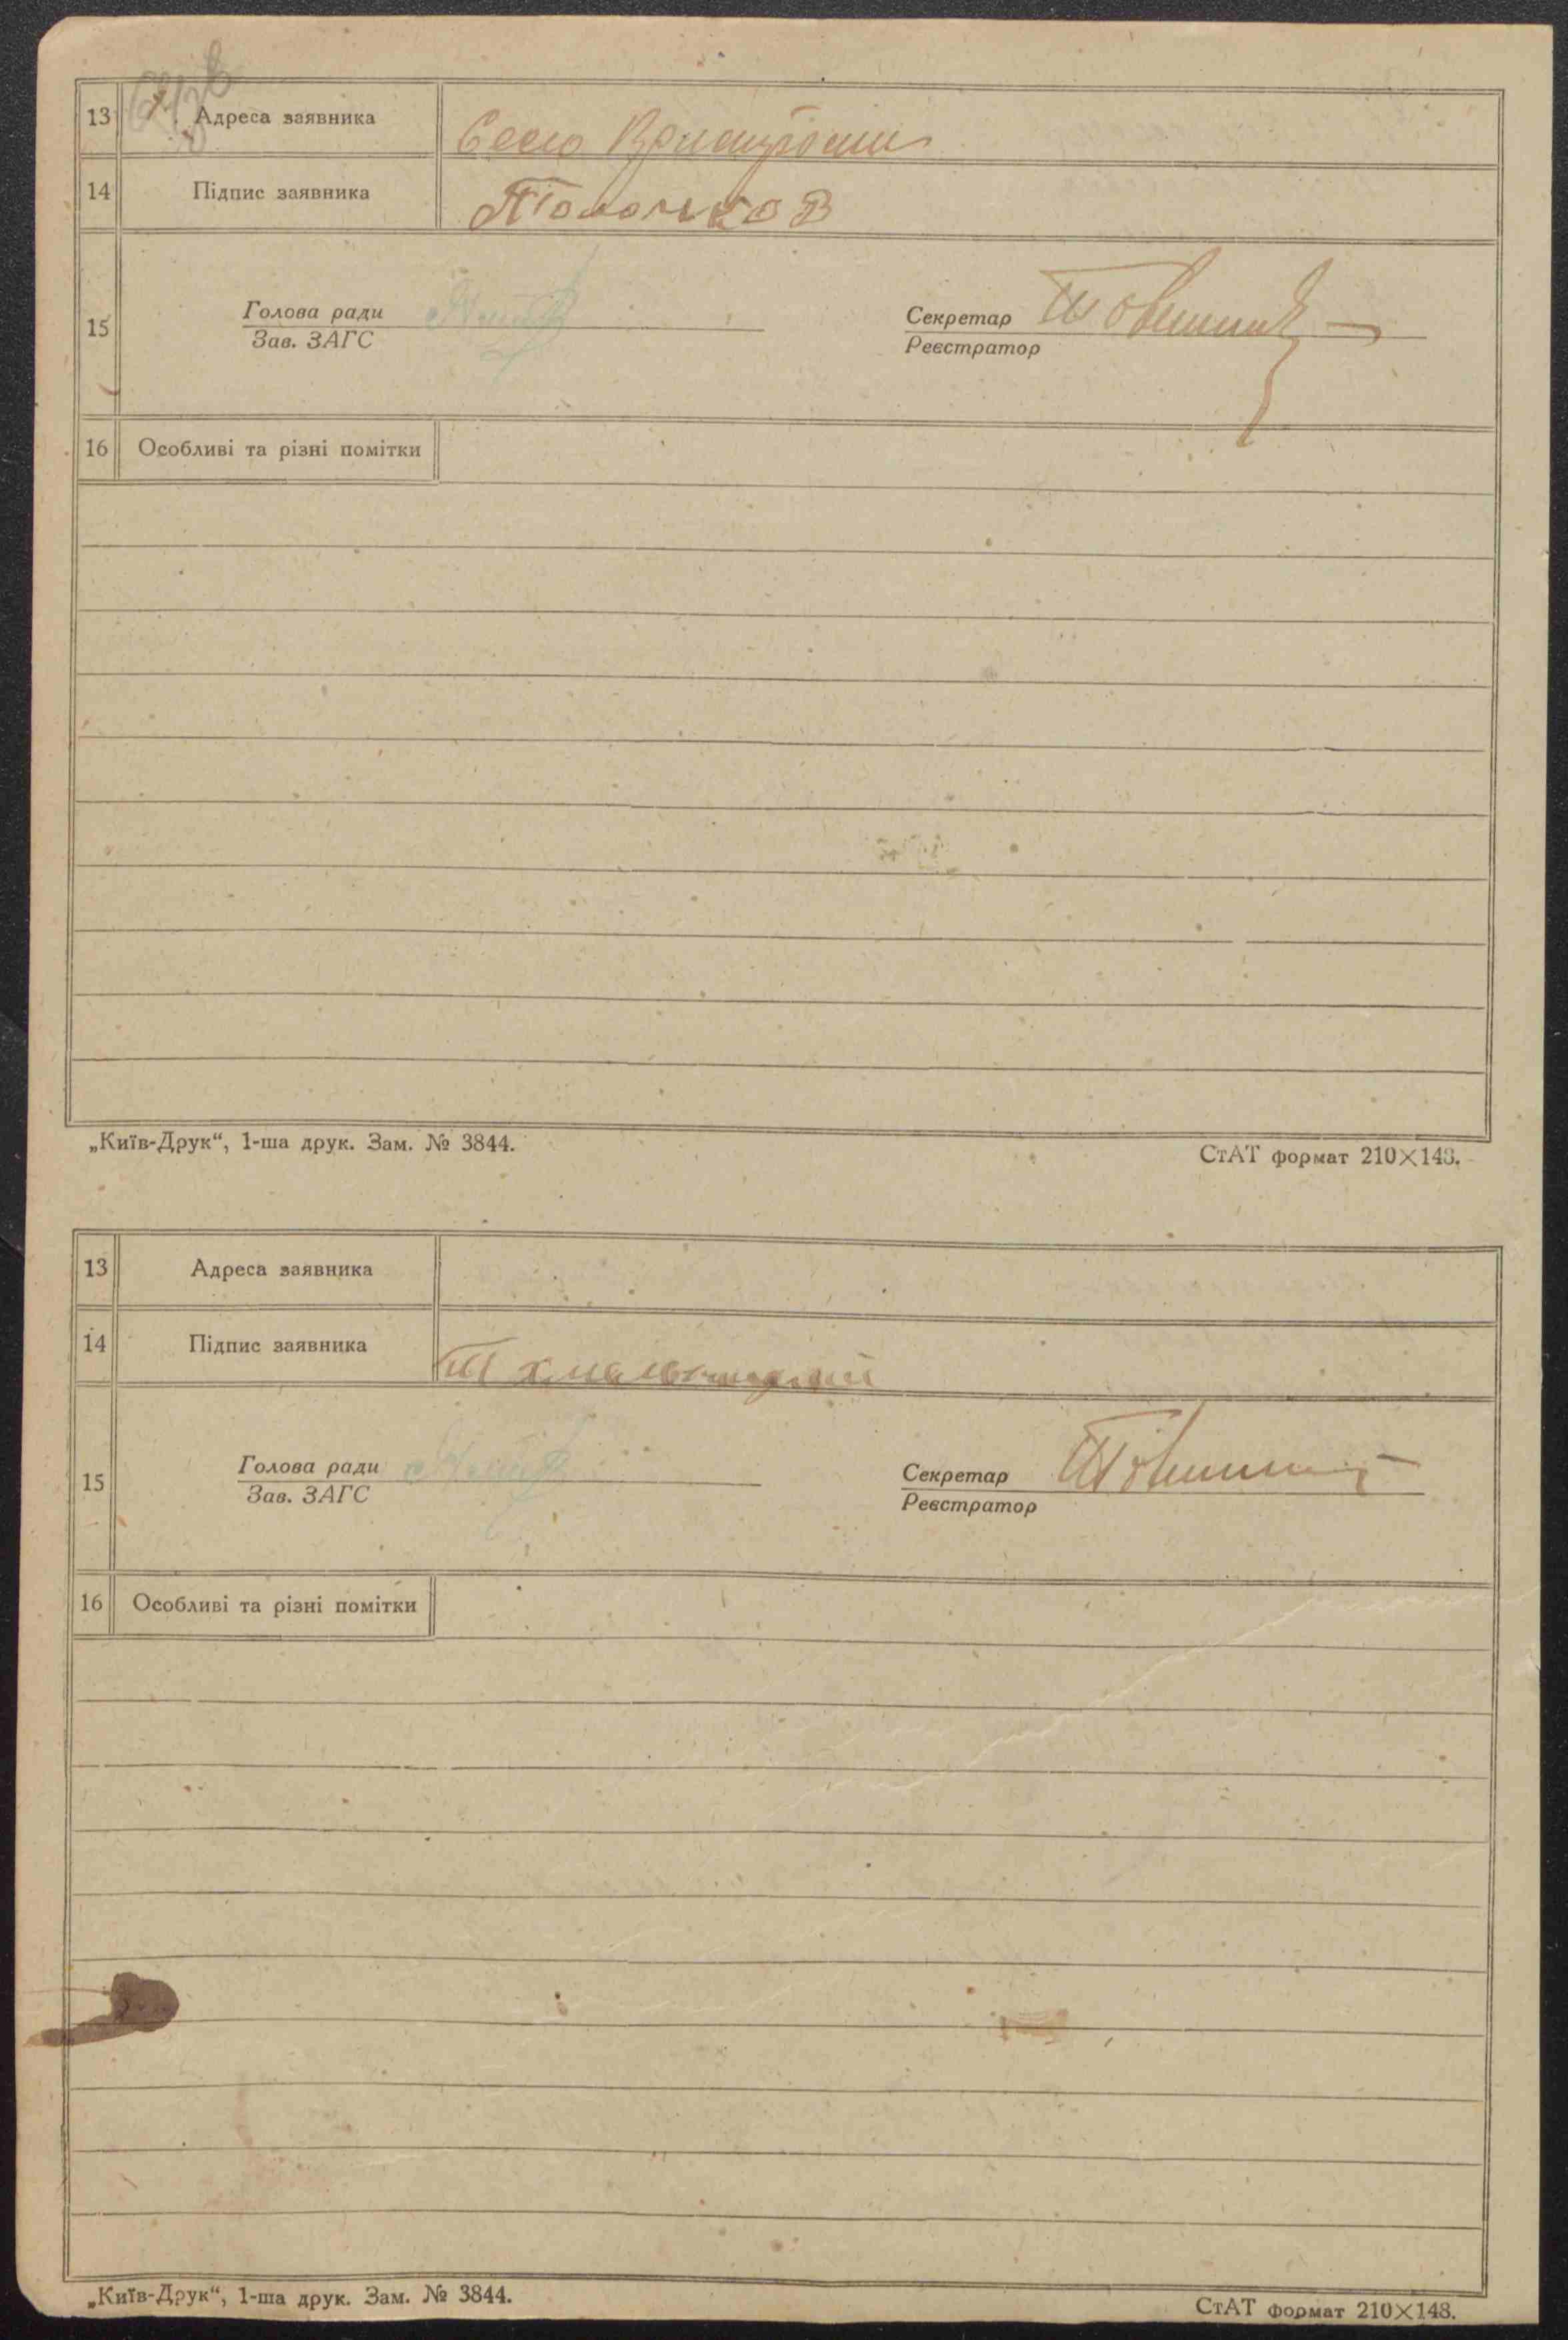 13 Адреса заявника Село
14 Підпис заявника
15 Голова ради Секретар
Зав. ЗАГС Реєстратор
16 Особливі та різні помітки
„Київ-Друк“, 1-ша друк. Зам. № 3844. СтАТ формат 210×148.
13 Адреса заявника
14 Підпис заявника
15 Голова ради Секретар
Зав. ЗАГС Реєстратор
16 Особливі та різні помітки
„Київ-Друк“, 1-ша друк. Зам. № 3844. СтАТ формат 210×148.